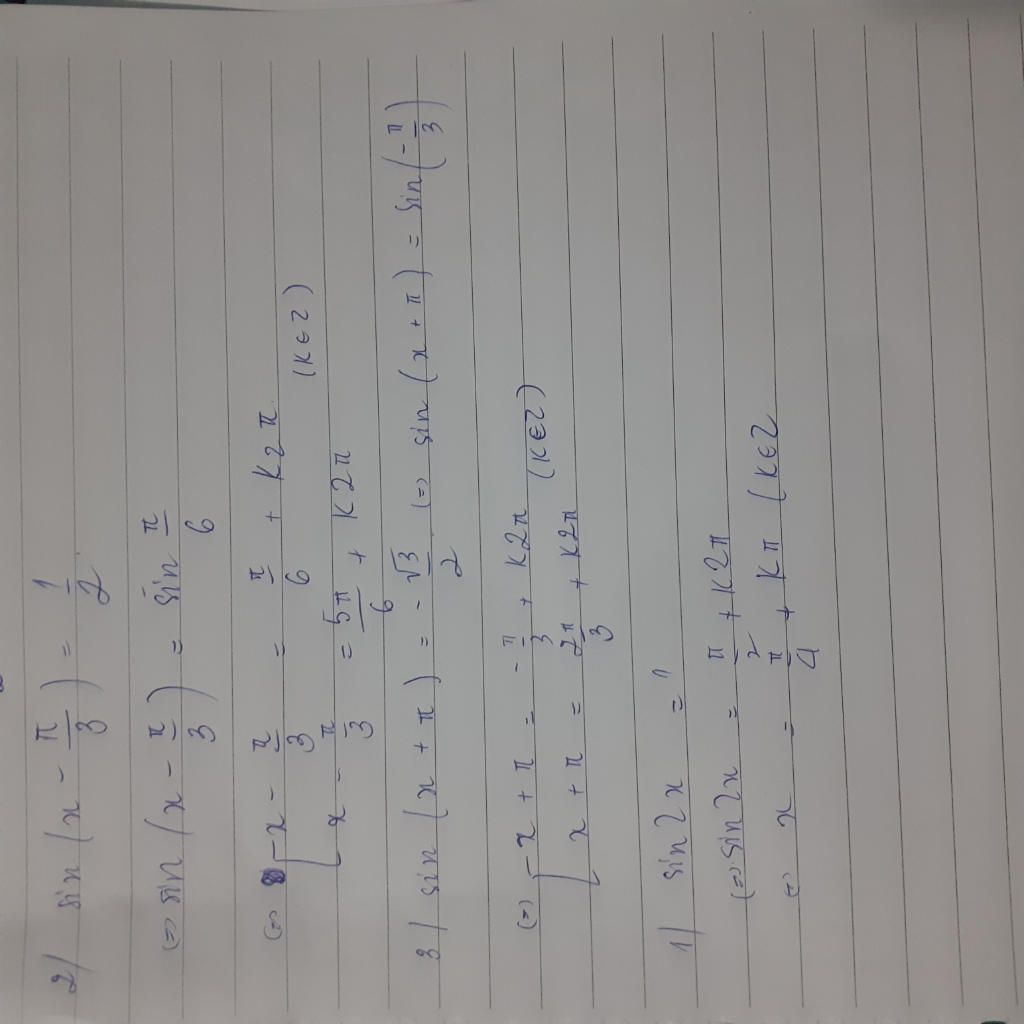 2/ sin (x - π/3) = 1/2
(=) sin (x - π/3) = sin π/6
(=) [ x - π/3 = π/6 + k2π
x - π/3 = 5π/6 + k2π (k∈Z)
3/ sin (x + π) = - √3/2 (=) sin (x + π) = sin (-π/3)
(=) [ x + π = - π/3 + k2π
x + π = 2π/3 + k2π (k∈Z)
1/ sin 2x = 1
(=) sin 2x = π/2 + k2π
(=) x = π/4 + kπ (k∈Z